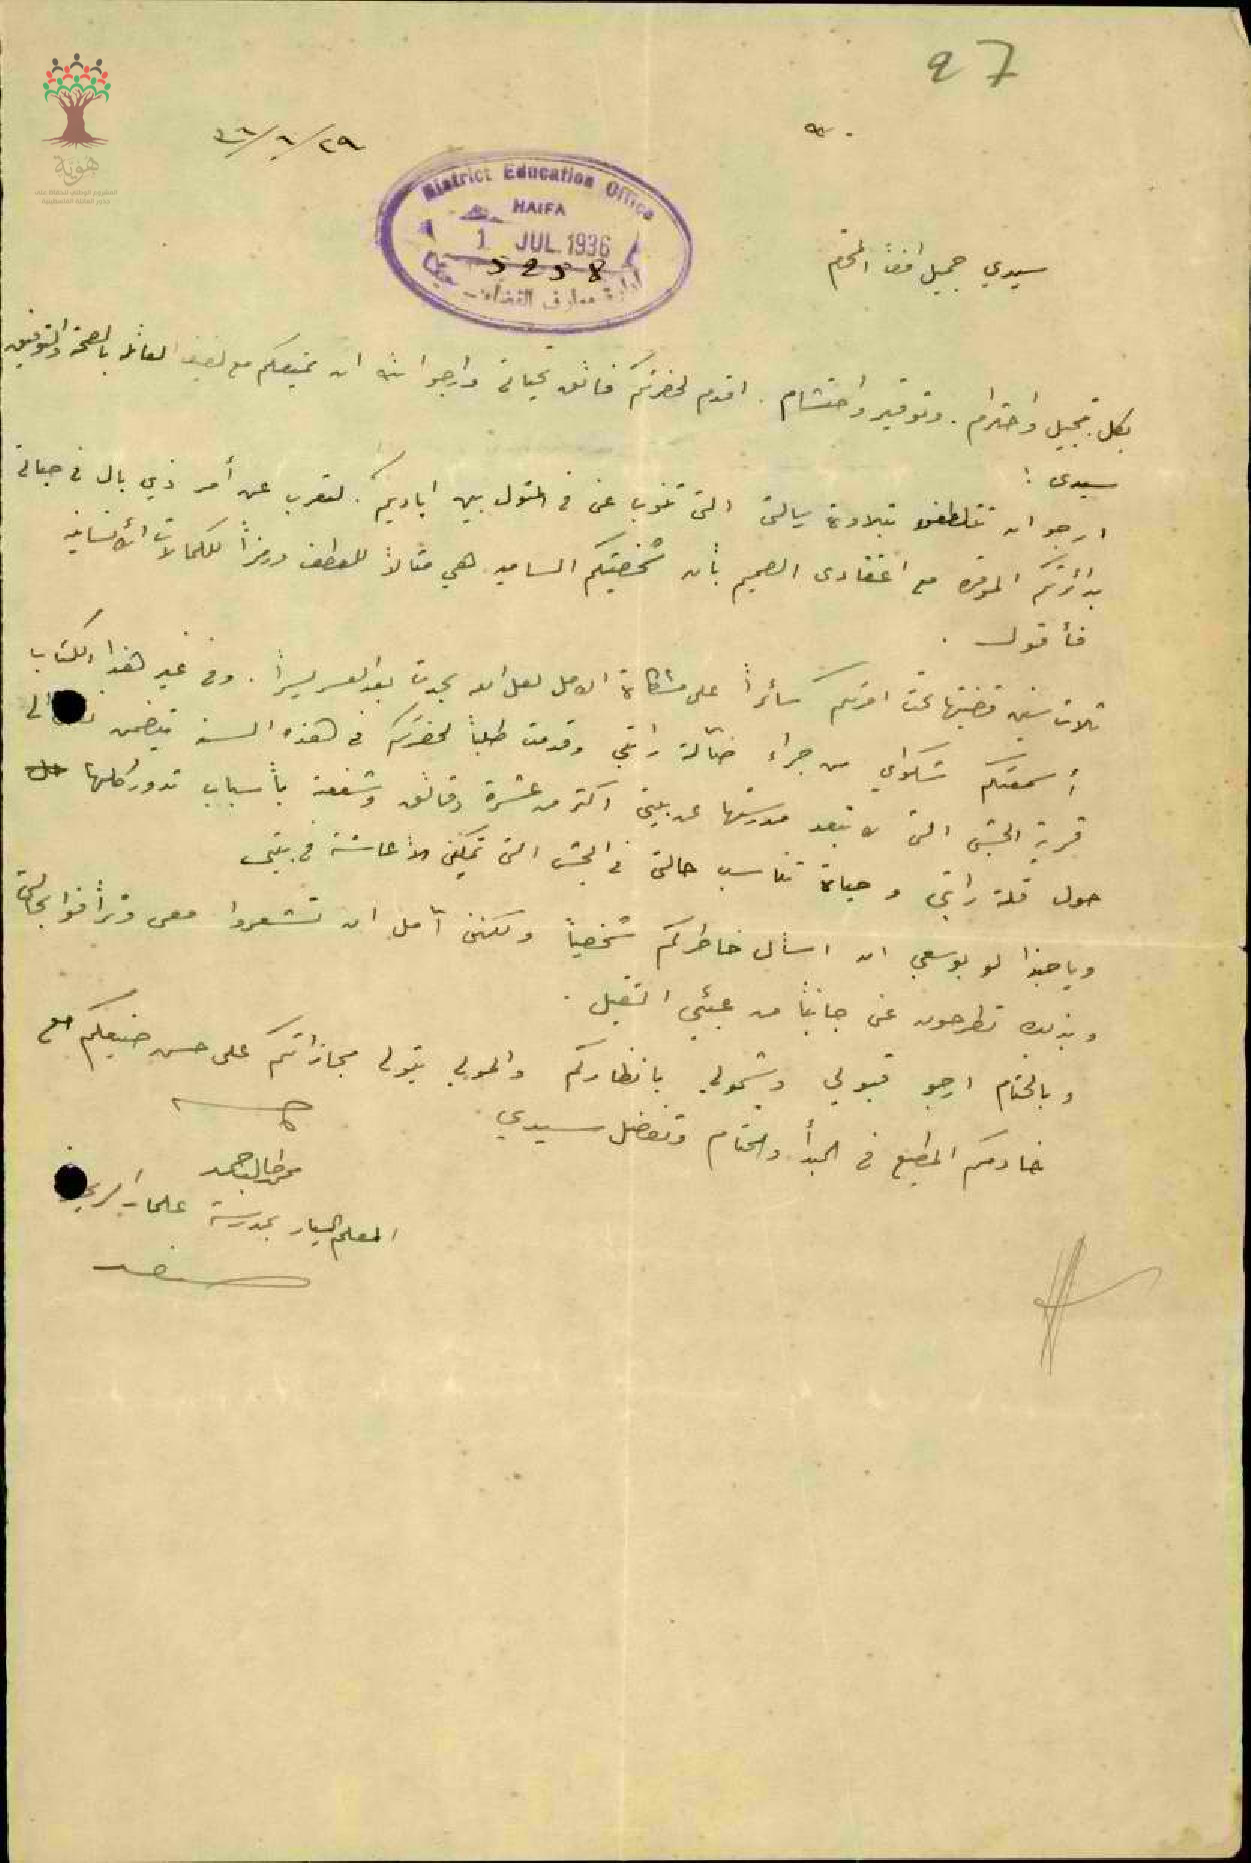 97
٢٩/٦/٣٦
District Education Office
HAIFA
1 JUL 1936
5258
إدارة معارف القضاء حيفا
سيدي جميل افندي المحترم
بكل تبجيل واحترام. وتوقير واحتشام. اقدم لحضرتكم فائق تحياتي وارجو الله ان يمتعكم مع لفيف العائلة بالصحة والتوفيق
سيدي :
ارجو ان تتلطفوا بتلاوة رسالتي التي تنوب عني في المثول بين اياديكم. لتعرب عن أمر ذي بال في حياتي
بدائرتكم الموقرة مع اعتقادي الصميم بأن شخصيتكم السامية هي مثالاً للعطف ورمزاً للكمالات الأنسانية
فأقول .
ثلاث سنين قضيتها تحت امرتكم سائراً على مشكاة الامل لعل الله يحدث بعد العسر يسراً. وفي غير هذا الكتاب
أسمعتكم شكواي من جراء ضآلة راتبي وقدمت طلباً لحضرتكم في هذه السنة يتضمن الى
قرية الجش التي لا تبعد مدرستها عن بيتي اكثر من عشرة دقائق وشفعته بأسباب تدور كلها
حول قلة راتبي وحياة تناسب حالتي في الجش التي تمكنني الأعاشة في بيتي
ويا حبذا لو بوسعي ان اسأل خاطركم شخصياً ولكنني آمل ان تشعروا معي وترأفوا بحالتي
وبذلك تطرحون عني جانباً من عبئي الثقيل .
وبالختام ارجو قبولي وشمولي بانظاركم والمولى يتولى مجازاتكم على حسن صنيعكم مع
خادمكم المطيع في المبدأ والختام وتفضل سيدي
المعلم السيار بمدرسة علما
صفد
هوية